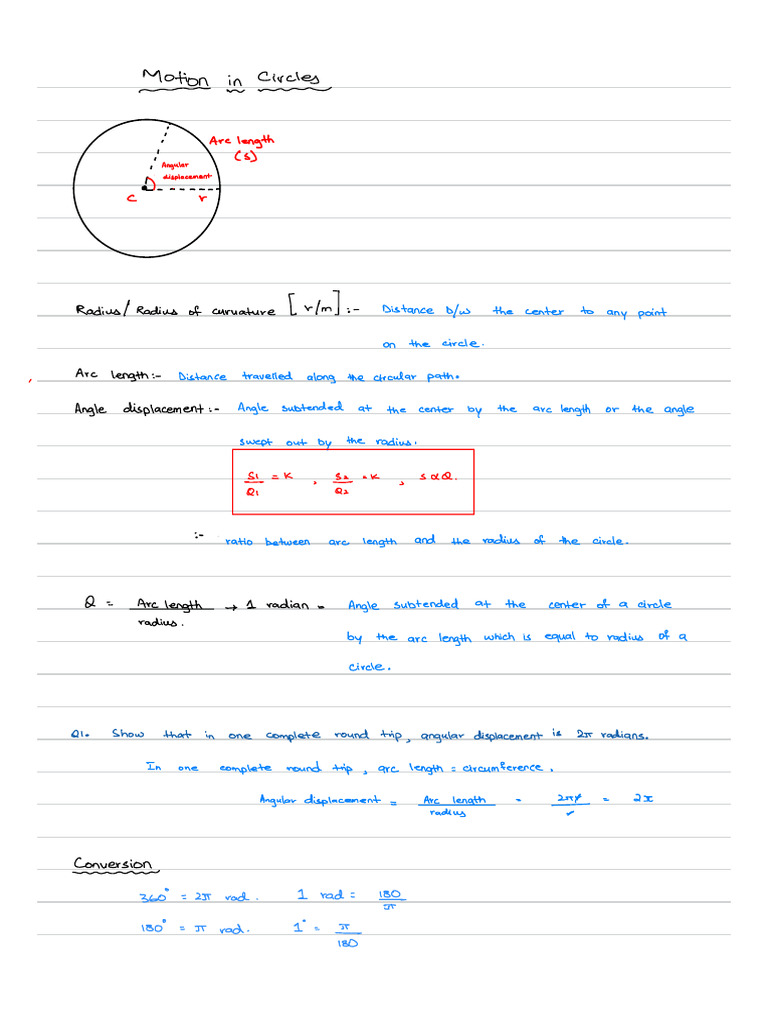 Motion in Circles
Arc length
(s)
Angular
displacement.
C r
Radius/ Radius of curvature [r/m] :- Distance b/w the center to any point
on the circle.
Arc length:- Distance travelled along the circular path.
Angle displacement :- Angle subtended at the center by the arc length or the angle
swept out by the radius.
S1/Q1 = K , S2/Q2 = K , s α Q.
:- ratio between arc length and the radius of the circle.
Q = Arc length/radius. → 1 radian = Angle subtended at the center of a circle
by the arc length which is equal to radius of a
circle.
Q1. Show that in one complete round trip, angular displacement is 2π radians.
In one complete round trip, arc length = circumference.
Angular displacement = Arc length/radius = 2πr/r = 2x
Conversion
360° = 2π rad. 1 rad = 180/π
180° = π rad. 1° = π/180